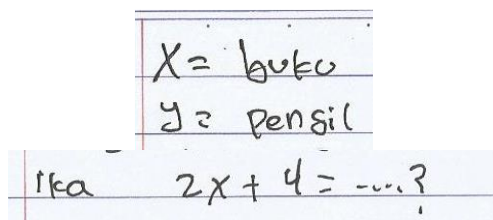 x = buku
y = pensil
Ika 2x + 4 = ....?